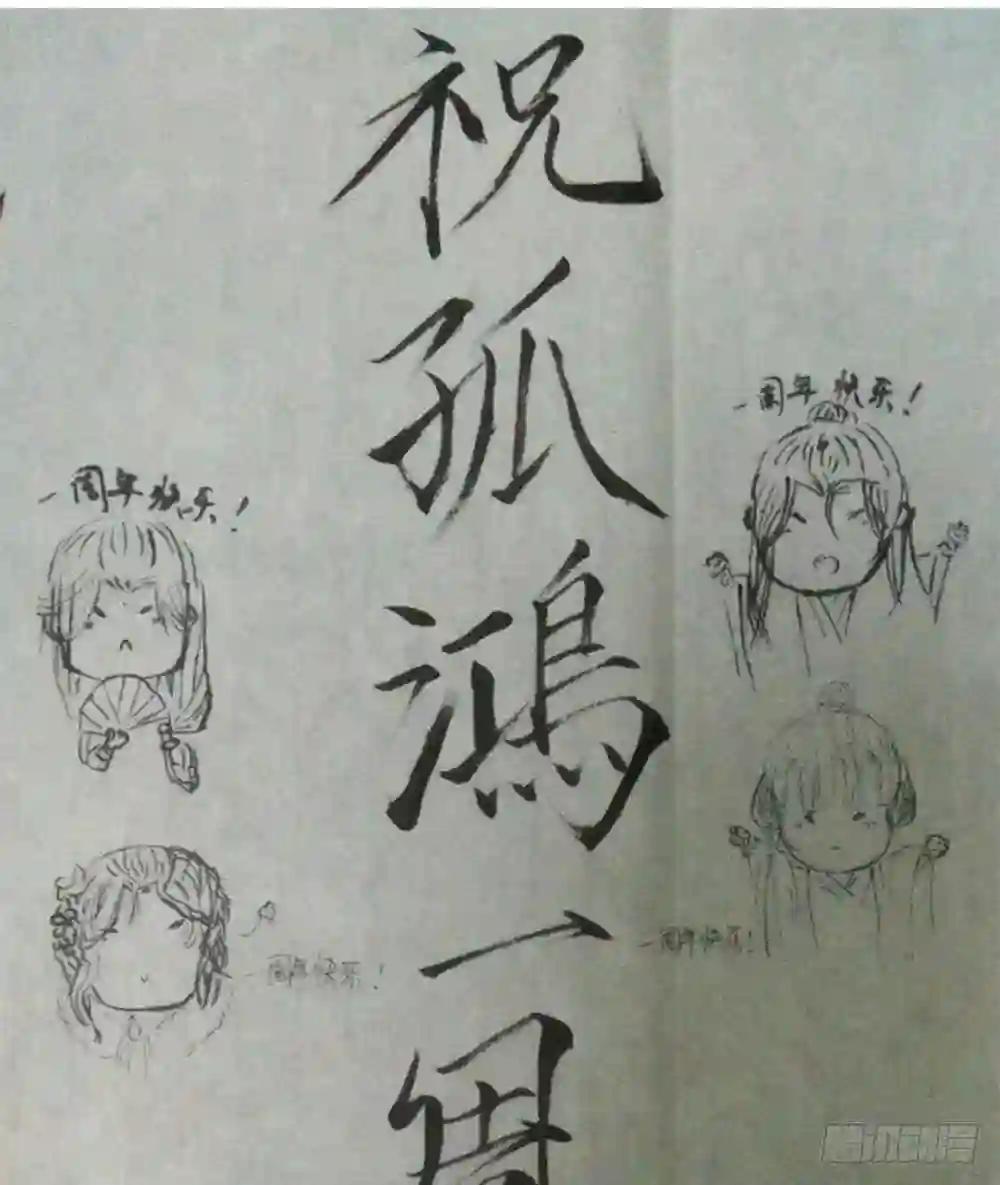 祝孤鴻一周
一周年快乐!
一周年快乐!
一周年快乐!
一周年快乐!